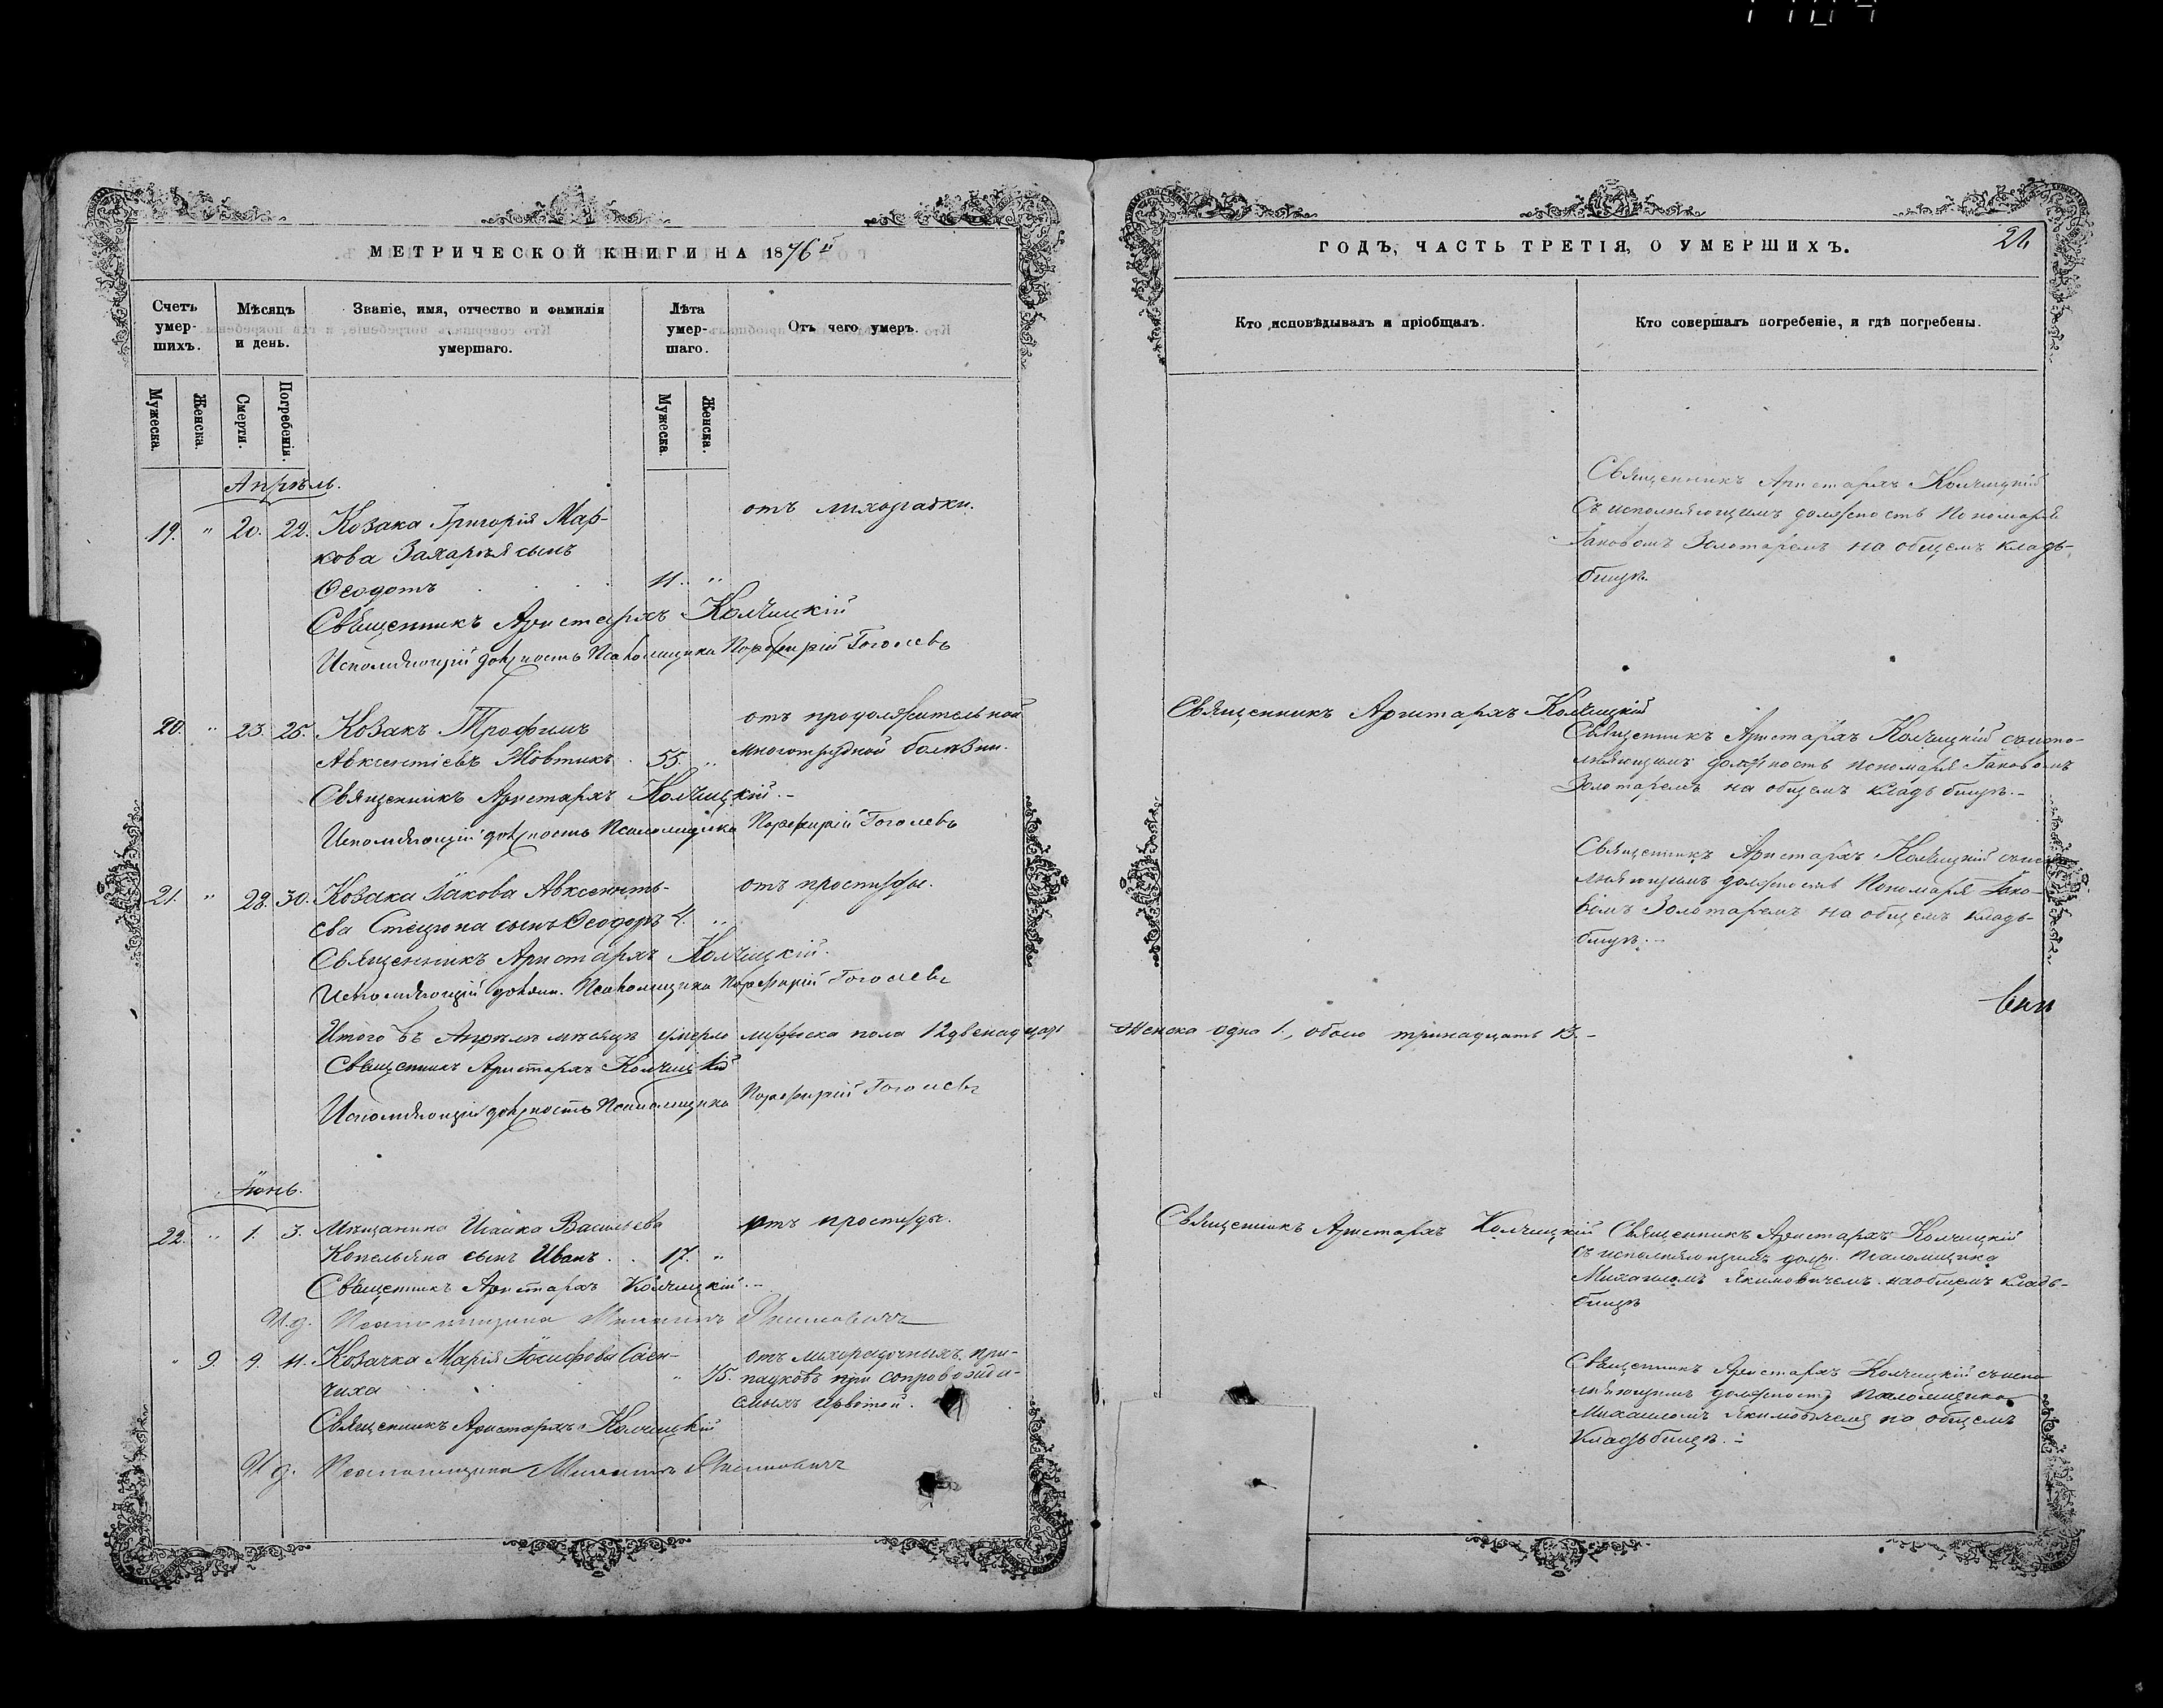 МЕТРИЧЕСКОЙ КНИГИ НА 1876й
Счетъ умер- шихъ.
Мѣсяцъ и день.
Званіе, имя, отчество и фамилія умершаго.
Лѣта умер- шаго.
Отъ чего умеръ.
Мужеска. Женска. Смерти. Погребенія. Мужеска. Женска.
Апрѣль.
19. " 20. 22. Козака Григорія Мар- отъ лихорадки.
кова Захарія сынъ
Ѳеодотъ 11. "
Священникъ Аристархъ Колчицкій
Исполняющій должность Псаломщика Порфирій Гоголевъ
20. " 23. 25. Козакъ Трофимъ отъ продолжительной
Авксентіевъ Жовтикъ . 55. " многотрудной болѣзни.
Священникъ Аристархъ Колчицкій.-
Исполняющій должность Псаломщика Порфирій Гоголевъ
21. " 28. 30. Козака Іакова Авксенть- отъ простуды.
ева Стецюна сынъ Ѳеодоръ 4. "
Священникъ Аристархъ Колчицкій.
Исполняющій должн. Псаломщика Порфирій Гоголевъ
Итого въ Апрѣлѣ мѣсяцѣ умерло мужеска пола 12 двенадцать
Священникъ Аристархъ Колчицкій
Исполняющій должность Псаломщика Порфирій Гоголевъ
Іюнь.
22. " 1. 3. Мѣщанина Исаака Васильева отъ простуды.
сынъ Иванъ . . 17. "
Священникъ Аристархъ Колчицкій.-
И.д. Псаломщика Михаилъ Якимовичъ
" 9. 9. 11. Козачка Марія Іосифова Саен- отъ лихорадочныхъ при-
чиха " 75. сопровожда-
емыхъ
Священникъ Аристархъ Колчицкій
И.д. Псаломщика Михаилъ Якимовичъ
ГОДЪ, ЧАСТЬ ТРЕТІЯ, О УМЕРШИХЪ.
Кто исповѣдывалъ и пріобщалъ.
Кто совершалъ погребеніе, и гдѣ погребены.
Священникъ Аристархъ Колчицкій
съ исполняющимъ должность Пономаря
Іаковомъ Золотаремъ на общемъ кладь-
бищѣ.
Священникъ Аристархъ Колчицкій
Священникъ Аристархъ Колчицкій съ испо-
лняющимъ должность пономаря Іаковомъ
Золотаремъ на общемъ кладьбищѣ.-
Священникъ Аристархъ Колчицкій съ испо
лняющимъ должность Пономаря Іако-
вомъ Золотаремъ на общемъ кладь-
бищѣ.-
Женска одна 1., обоего тринадцать 13.-
Священникъ Аристархъ Колчицкій
Священникъ Аристархъ Колчицкій
съ исполняющимъ долж. Псаломщика
Михаиломъ Якимовичемъ на общемъ кладь-
бищѣ
Священникъ Аристархъ Колчицкій съ испо
лняющимъ должность Псаломщика
Михаиломъ Якимовичемъ на общемъ
Кладьбищѣ.-